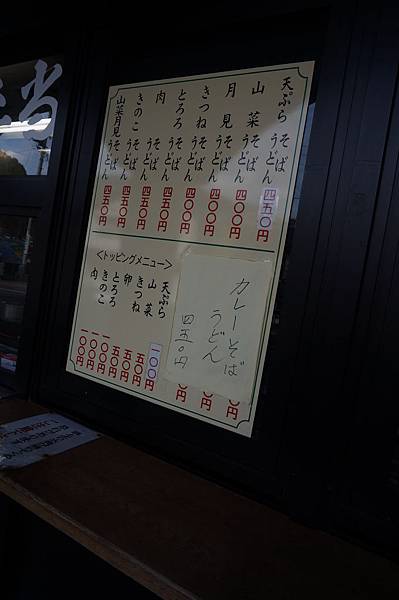 天ぷら そば うどん 四五〇円
山菜 そば うどん 四〇〇円
月見 そば うどん 四〇〇円
きつね そば うどん 四〇〇円
とろろ そば うどん 四五〇円
肉 そば うどん 四五〇円
きのこ そば うどん 四五〇円
山菜月見 そば うどん 四五〇円
カレーそば
うどん
四五〇円
<トッピングメニュー>
天ぷら 一〇〇円
山菜 五〇円
きつね 五〇円
卵 五〇円
とろろ 一〇〇円
きのこ 一〇〇円
肉 一〇〇円
当